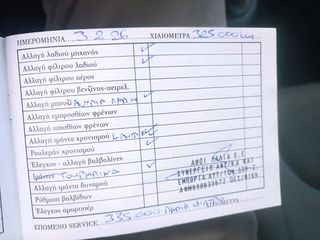 ΗΜΕΡΟΜΗΝΙΑ 3.2.26 ΧΙΛΙΟΜΕΤΡΑ 325.000 km
Αλλαγή λαδιού μηχανής ✓
Αλλαγή φίλτρου λαδιού ✓
Αλλαγή φίλτρου αέρον
Αλλαγή φίλτρου βενζίναν-πετρελ.
Αλλαγή μπουζί ✓
Αλλαγή εμπροσθίων φρένων
Αλλαγή οπισθίων φρένων
Αλλαγή ιμάντα χρονισμού ✓
Ρουλεμάν χρονισμού ✓
Έλεγχος - αλλαγή βαλβολίνες
Ιμάντα ✓
Αλλαγή ιμάντα δυναμού
Ρύθμιση βαλβίδων
Έλεγχος αμορτισέρ
ΑΦΟΙ Ο.Ε
ΣΥΝΕΡΓΕΙΟ
ΕΜΠΟΡΙΑ ΑΥΤ/ΤΩΝ
ΘΕΣ/ΝΙΚΗ
ΕΠΟΜΕΝΟ SERVICE 335.000 ΧΙΛΙΟΜΕΤΡΑ